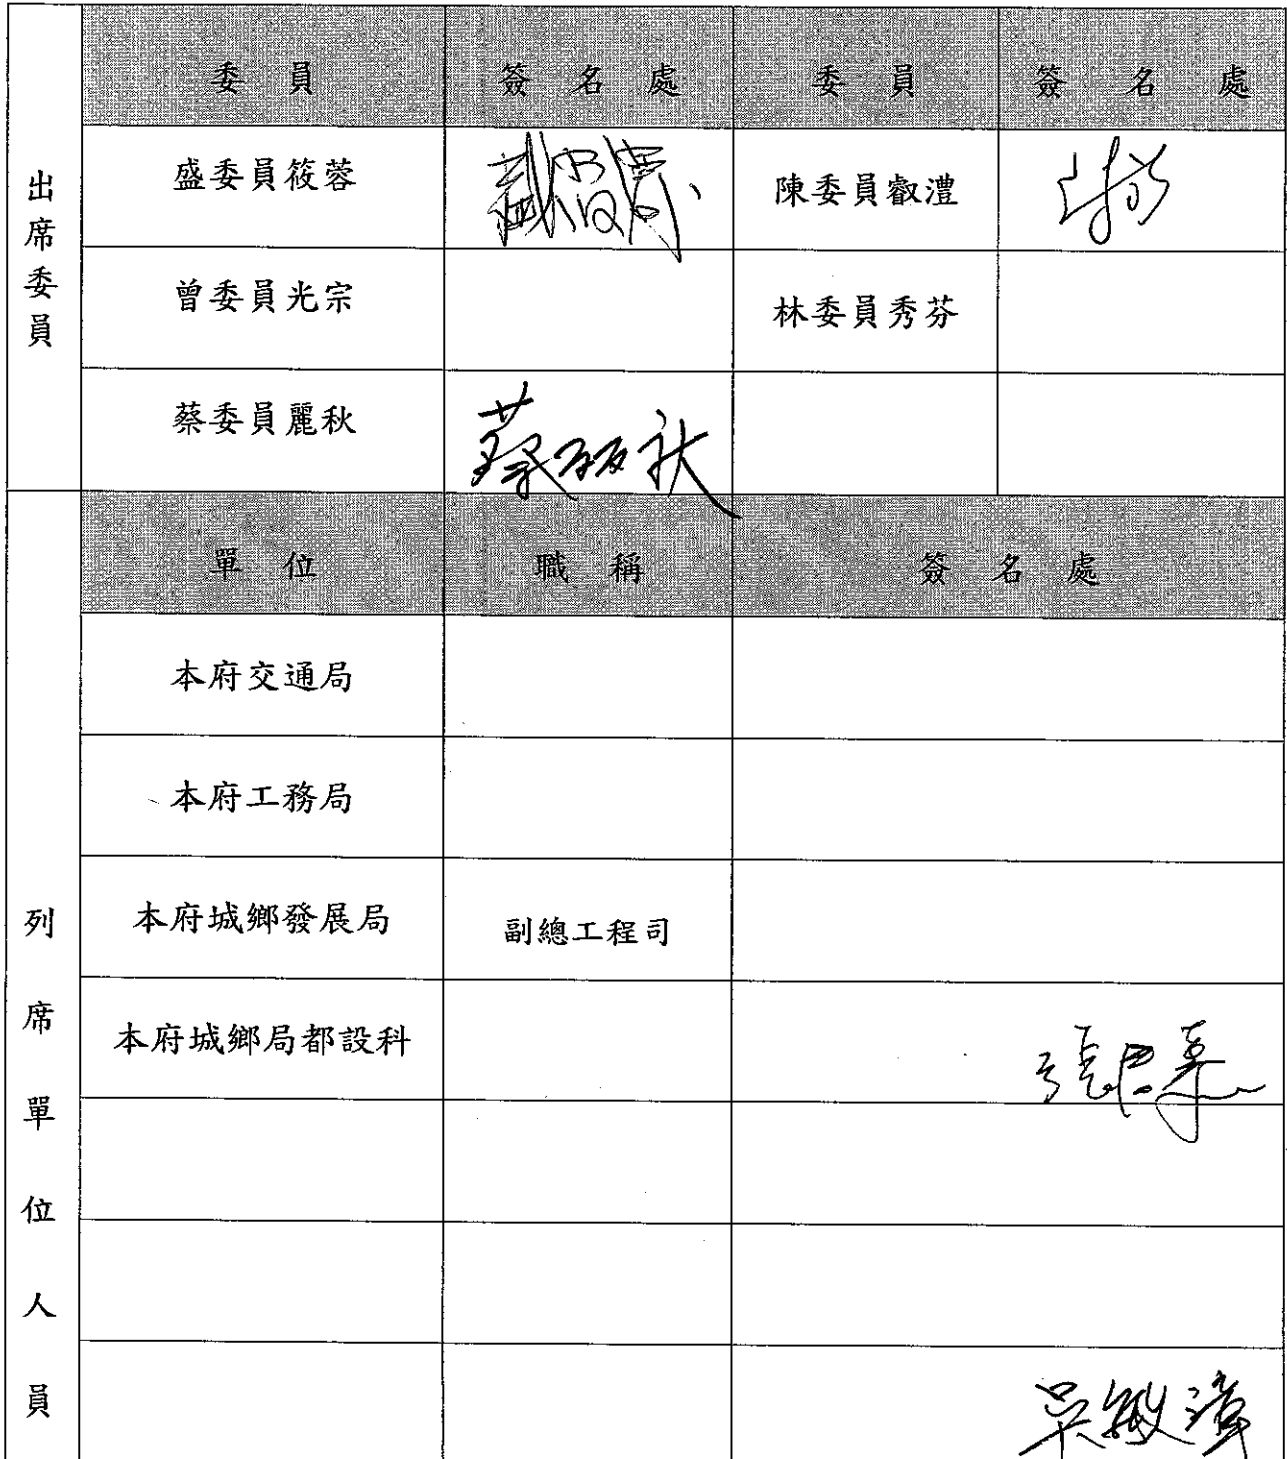 出席委員
委員 簽名處 委員 簽名處
盛委員筱蓉 陳委員叡澧
曾委員光宗 林委員秀芬
蔡委員麗秋 蔡麗秋
列席單位人員
單位 職稱 簽名處
本府交通局
本府工務局
本府城鄉發展局 副總工程司
本府城鄉局都設科